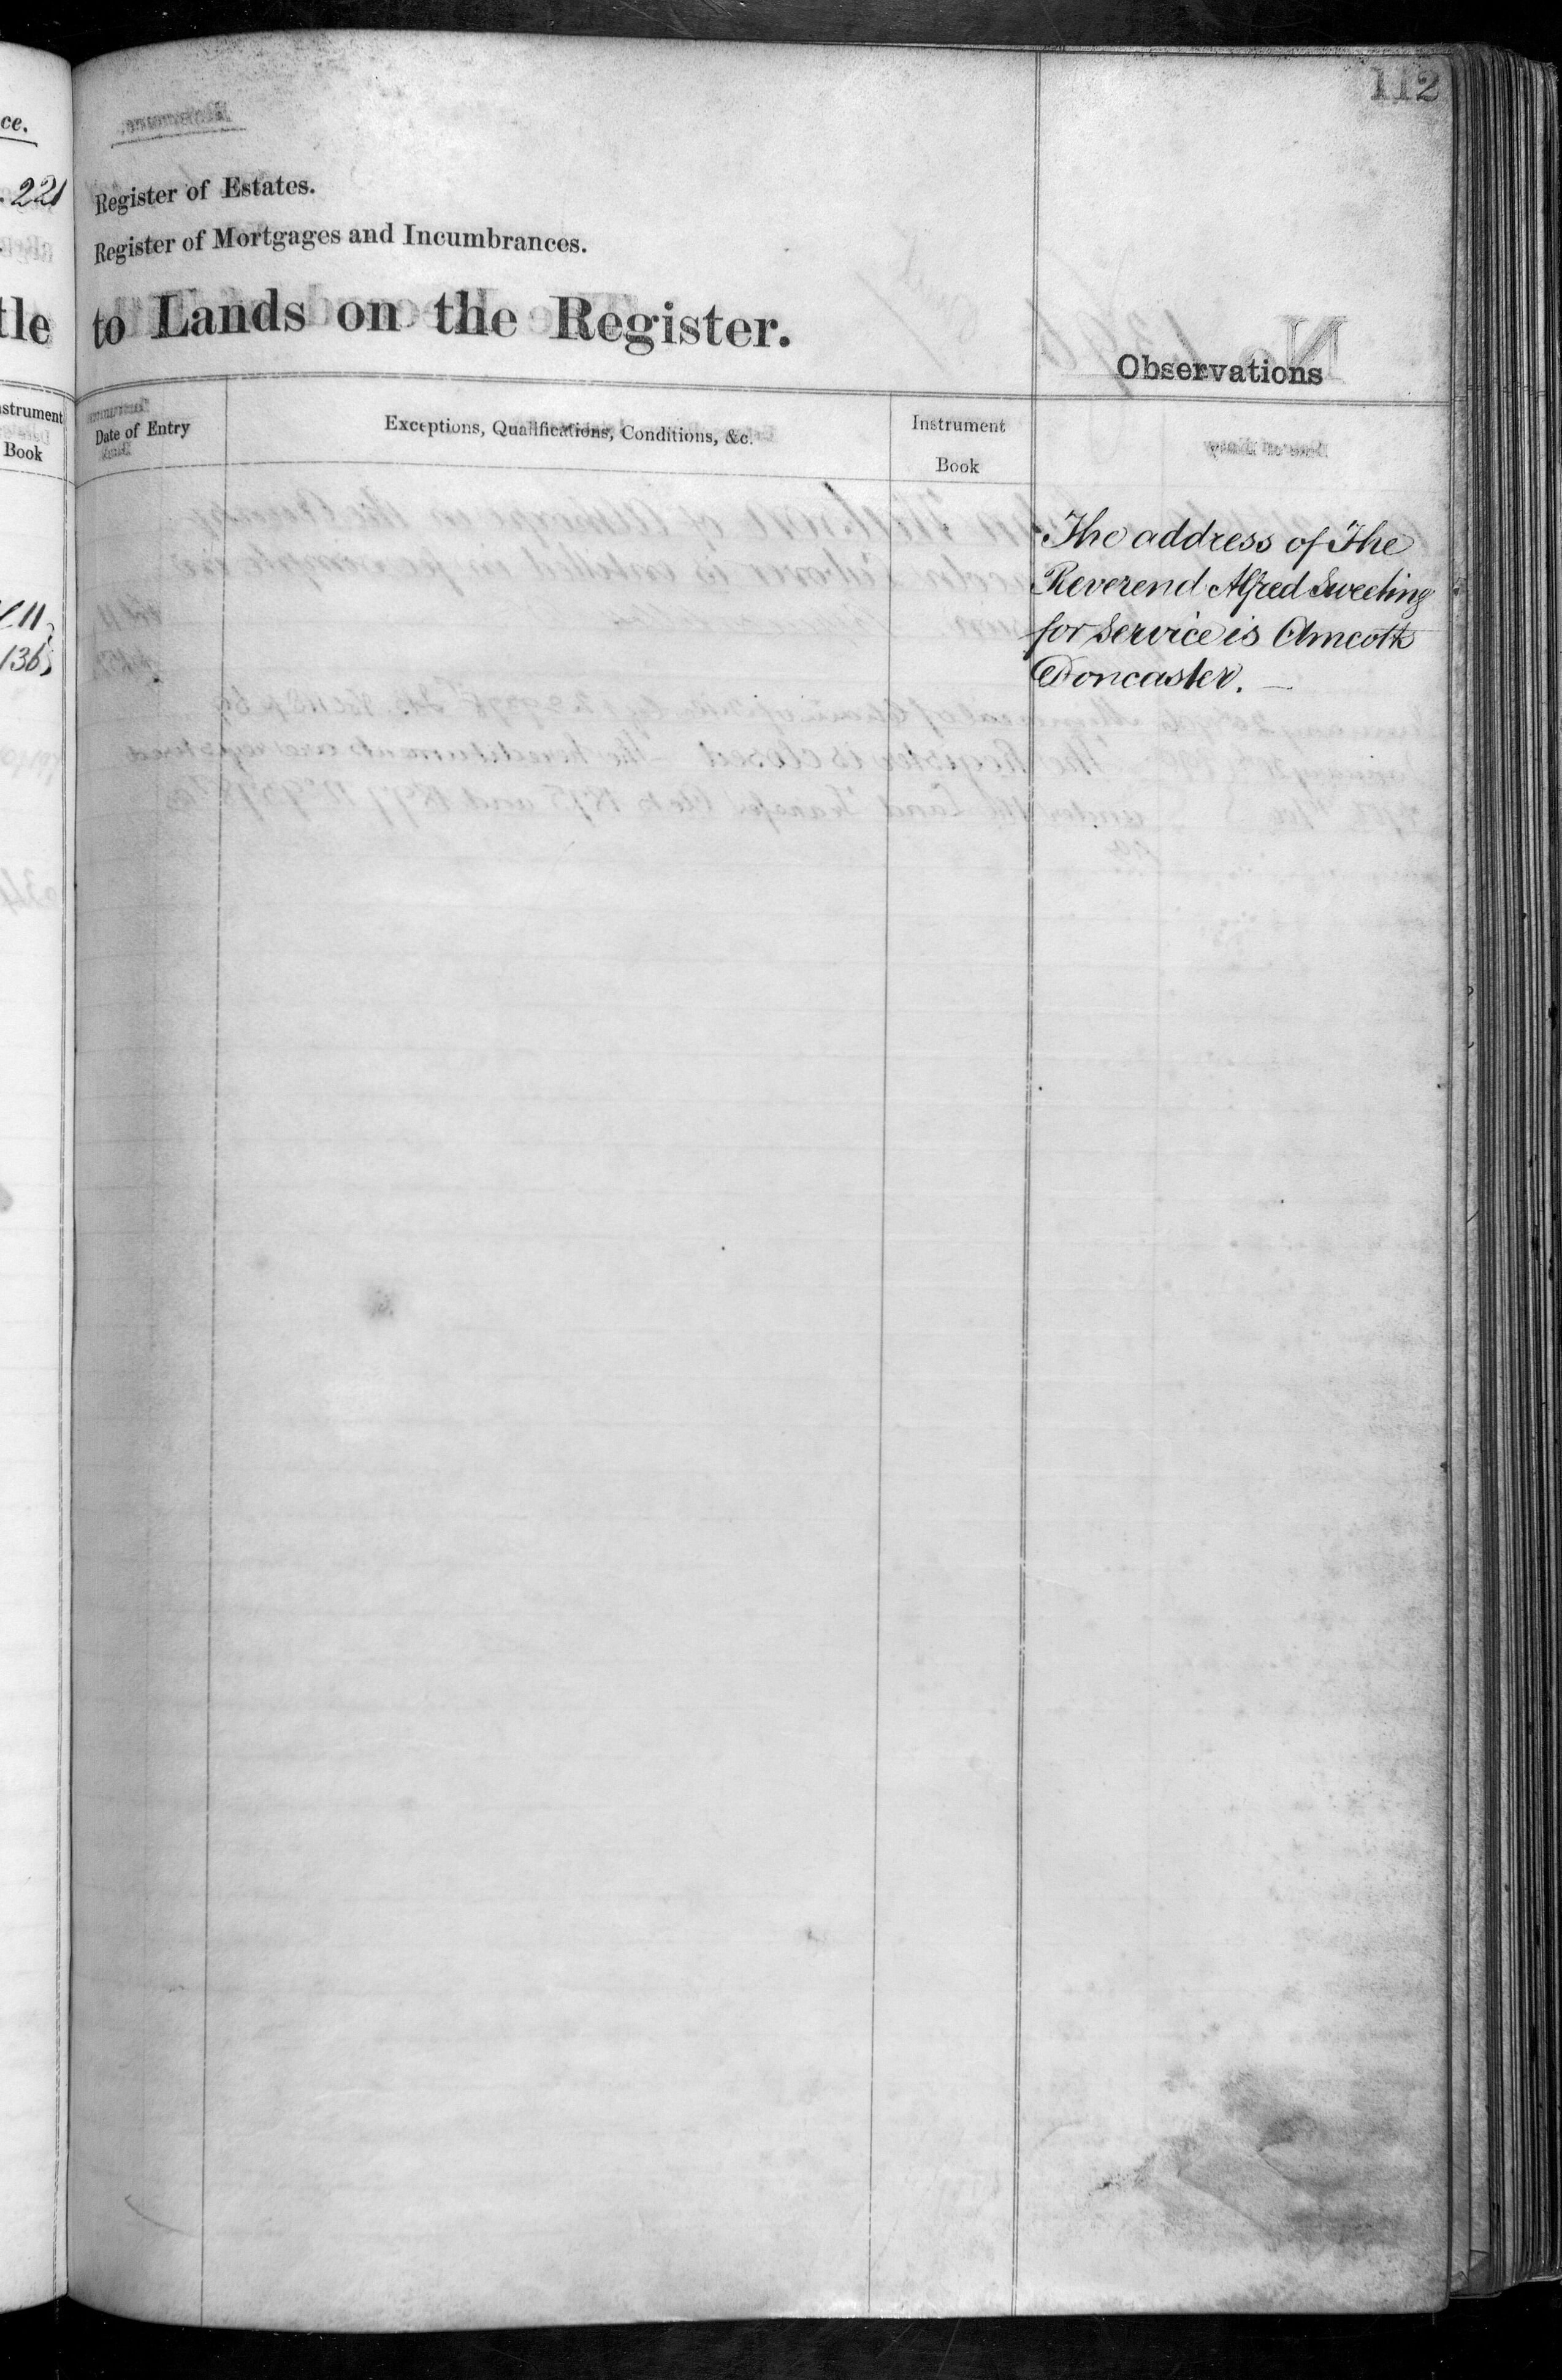 112
ce.
221
Register of Estates.
Register of Mortgages and Incumbrances.
tle
to Lands on the Register.
Observations
nstrument
Book
Date of Entry
Exceptions, Qualifications, Conditions, &c.
Instrument
Book
The address of The
Reverend Alfred Sweeting
for Service is Amcotts
Doncaster. —
136